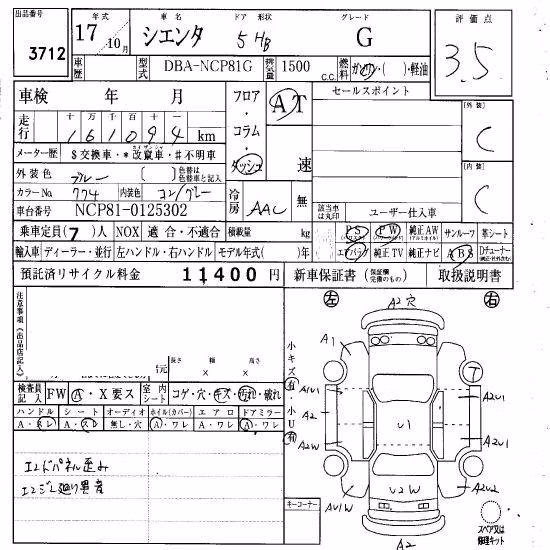 出品番号
3712
年式
17年 10月
車名
シエンタ
ドア 形状
5 HB
グレード
G
評価点
3.5
車歴
型式
DBA-NCP81G
排気量
1500 c.c.
燃料
ガソリン・( )・軽油
車検 年 月
フロア・コラム・ダッシュ
AT
速
セールスポイント
外装
C
走行
十万千百十一
161094 km
メーター歴
$交換車・*改竄車・#不明車
内装
C
外装色
ブルー
[ ]
色替は色替車と記入
カラーNo
774
内装色
コン/グレー
冷房
AAC
無
車台番号
NCP81-0125302
該当車は丸印
ユーザー仕入車
乗車定員(7)人
NOX 適合・不適合
積載量
kg
PS
PW
純正AW
サンルーフ
革シート
輸入車
ディーラー・並行
左ハンドル・右ハンドル
モデル年式( )年
エアバッグ
純正TV
純正ナビ
ABS
預託済リサイクル料金
11400円
新車保証書
取扱説明書
注意事項(出品店記入)
長さ × 幅 × 高さ
検査員記入
FW
A・X要ス
室内シート
コゲ・穴・キズ・汚れ・破れ
ハンドル
シート
オーディオ
ホイル(カバー)
エアロ
ドアミラー
A・スレ
A・スレ
無し・穴
A・ワレ
A・ワレ
A・ワレ
小キズ有・小U有
左
右
A2穴
A1
T
A1U1
A2U1
A2
U1
A2W
A2U1
AU1W
U2W
A2U2
A2
スペア又は修理キット
キーコーナー
エンドパネル歪み